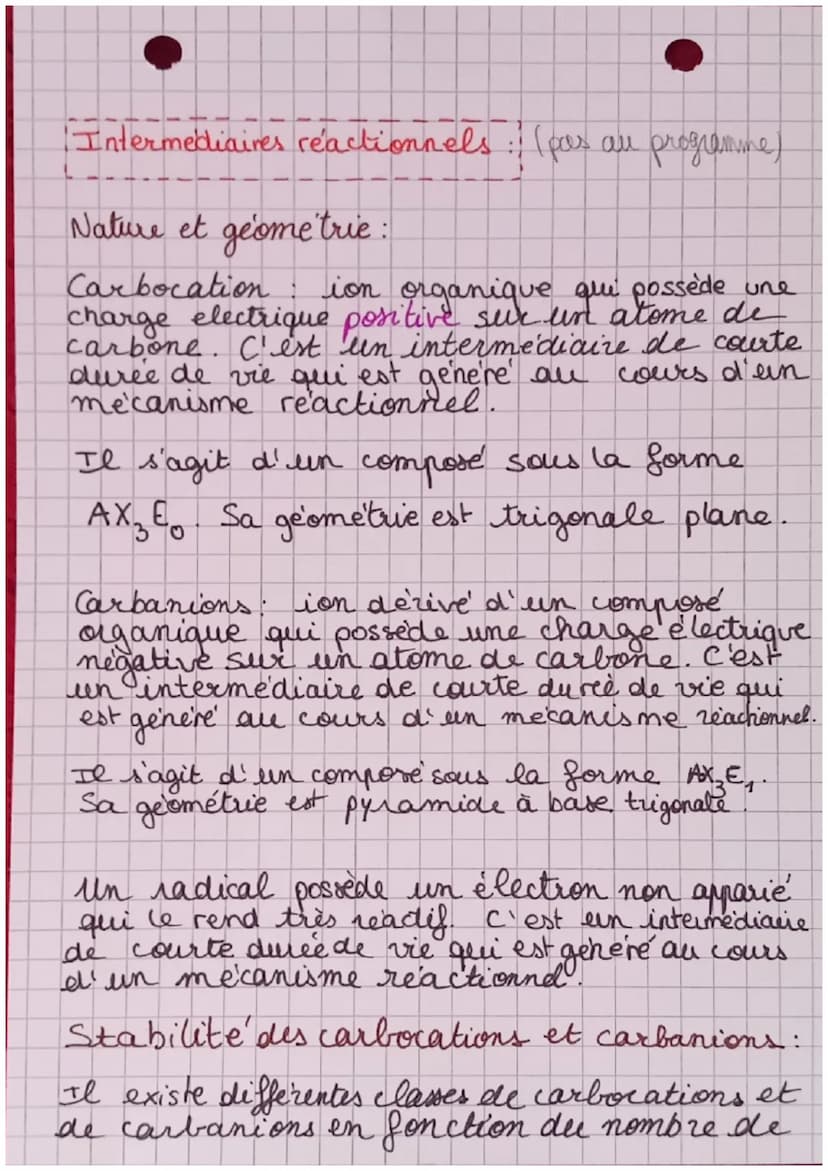 Intermédiaires réactionnels : (pas au programme)
Nature et géométrie :
Carbocation : ion organique qui possède une
charge électrique positive sur un atome de
carbone. C'est un intermédiaire de courte
durée de vie qui est généré au cours d'un
mécanisme réactionnel.
Il s'agit d'un composé sous la forme
AX₃E₀. Sa géométrie est trigonale plane.
Carbanions : ion dérivé d'un composé
organique qui possède une charge électrique
négative sur un atome de carbone. C'est
un intermédiaire de courte durée de vie qui
est généré au cours d'un mécanisme réactionnel.
Il s'agit d'un composé sous la forme AX₃E₁.
Sa géométrie est pyramide à base trigonale.
Un radical possède un électron non apparié
qui le rend très réactif. C'est un intermédiaire
de courte durée de vie qui est généré au cours
d'un mécanisme réactionnel.
Stabilité des carbocations et carbanions :
Il existe différentes classes de carbocations et
de carbanions en fonction du nombre de